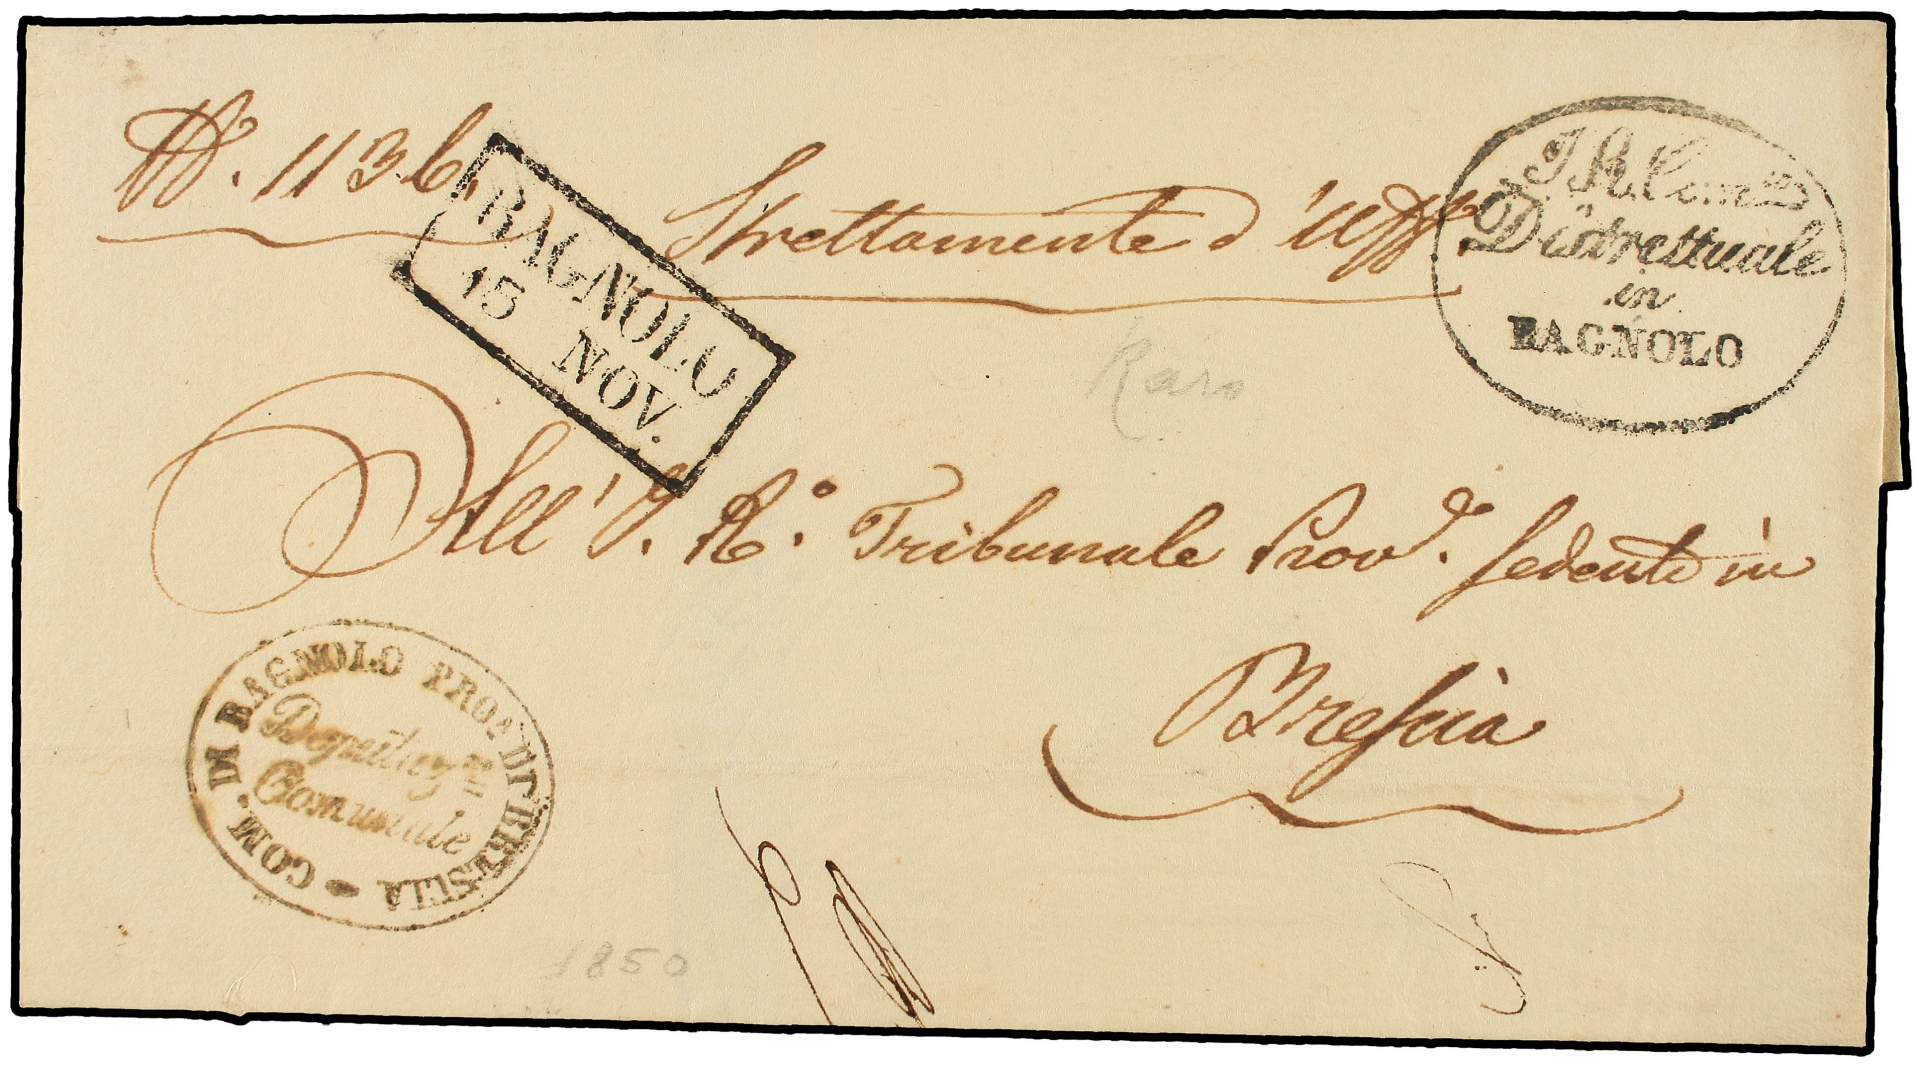 N. 1136.
Strettamente d'uff.o
I. R. Com.rio
Distrettuale
in
BAGNOLO
BAGNOLO
15 NOV.
Raro
All' I. R.° Tribunale Prov.e sedente in
Brescia
COM. DI BAGNOLO PROV. DI BRESCIA
Deputaz.ne
Comunale
1850